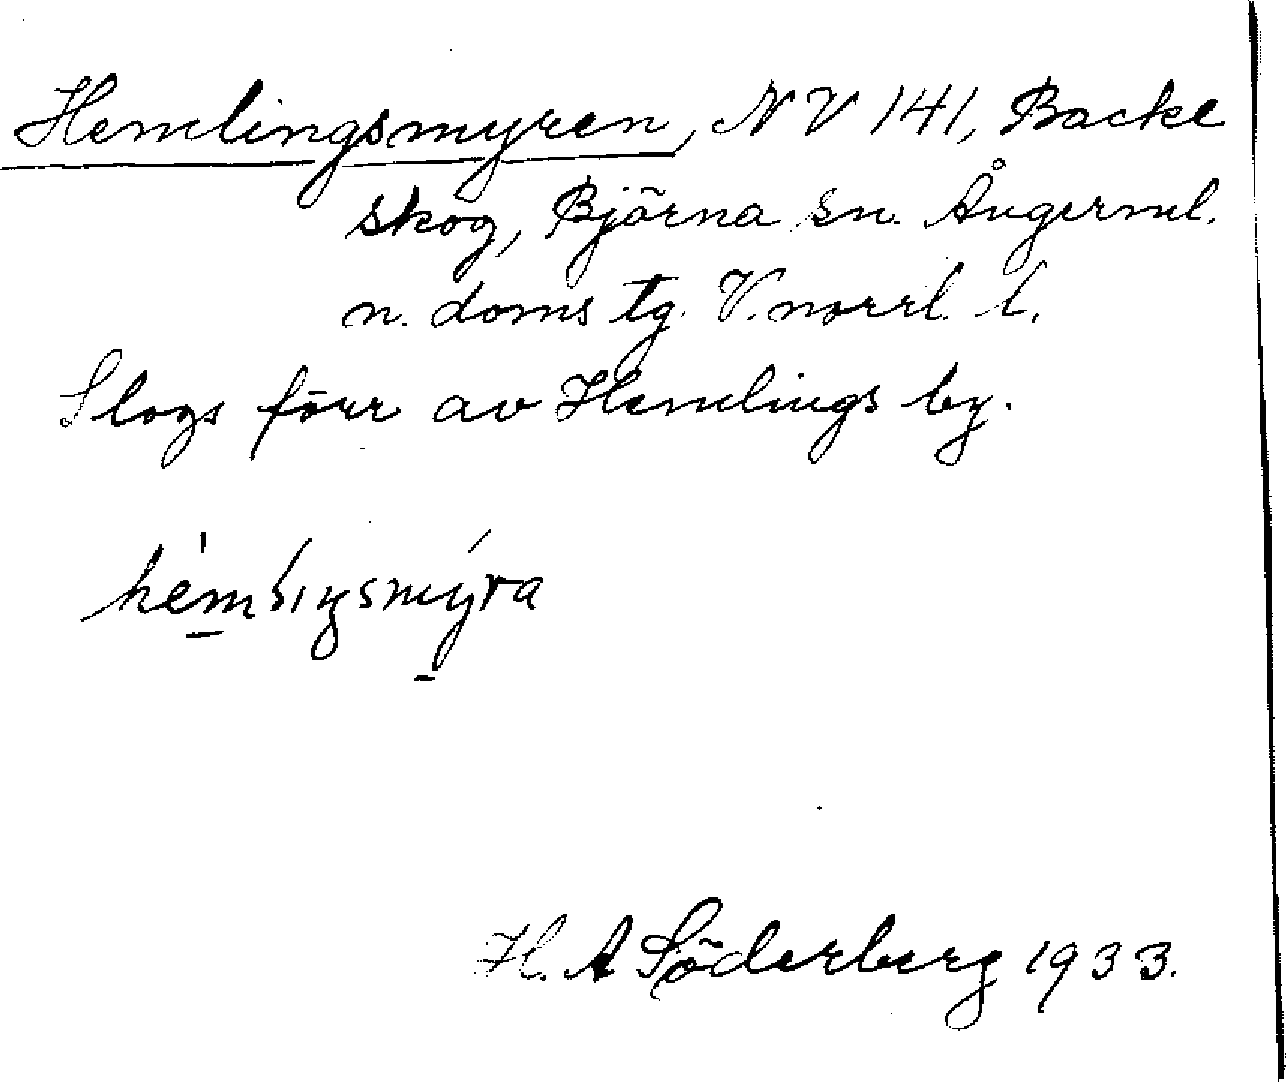 Hemlingsmyren, NV 141, Backe
skog, Björna sn. Ångerml.
n. doms tg. V. norrl. l.
Slogs förr av Hemlings by.
H. A Söderberg 1933.